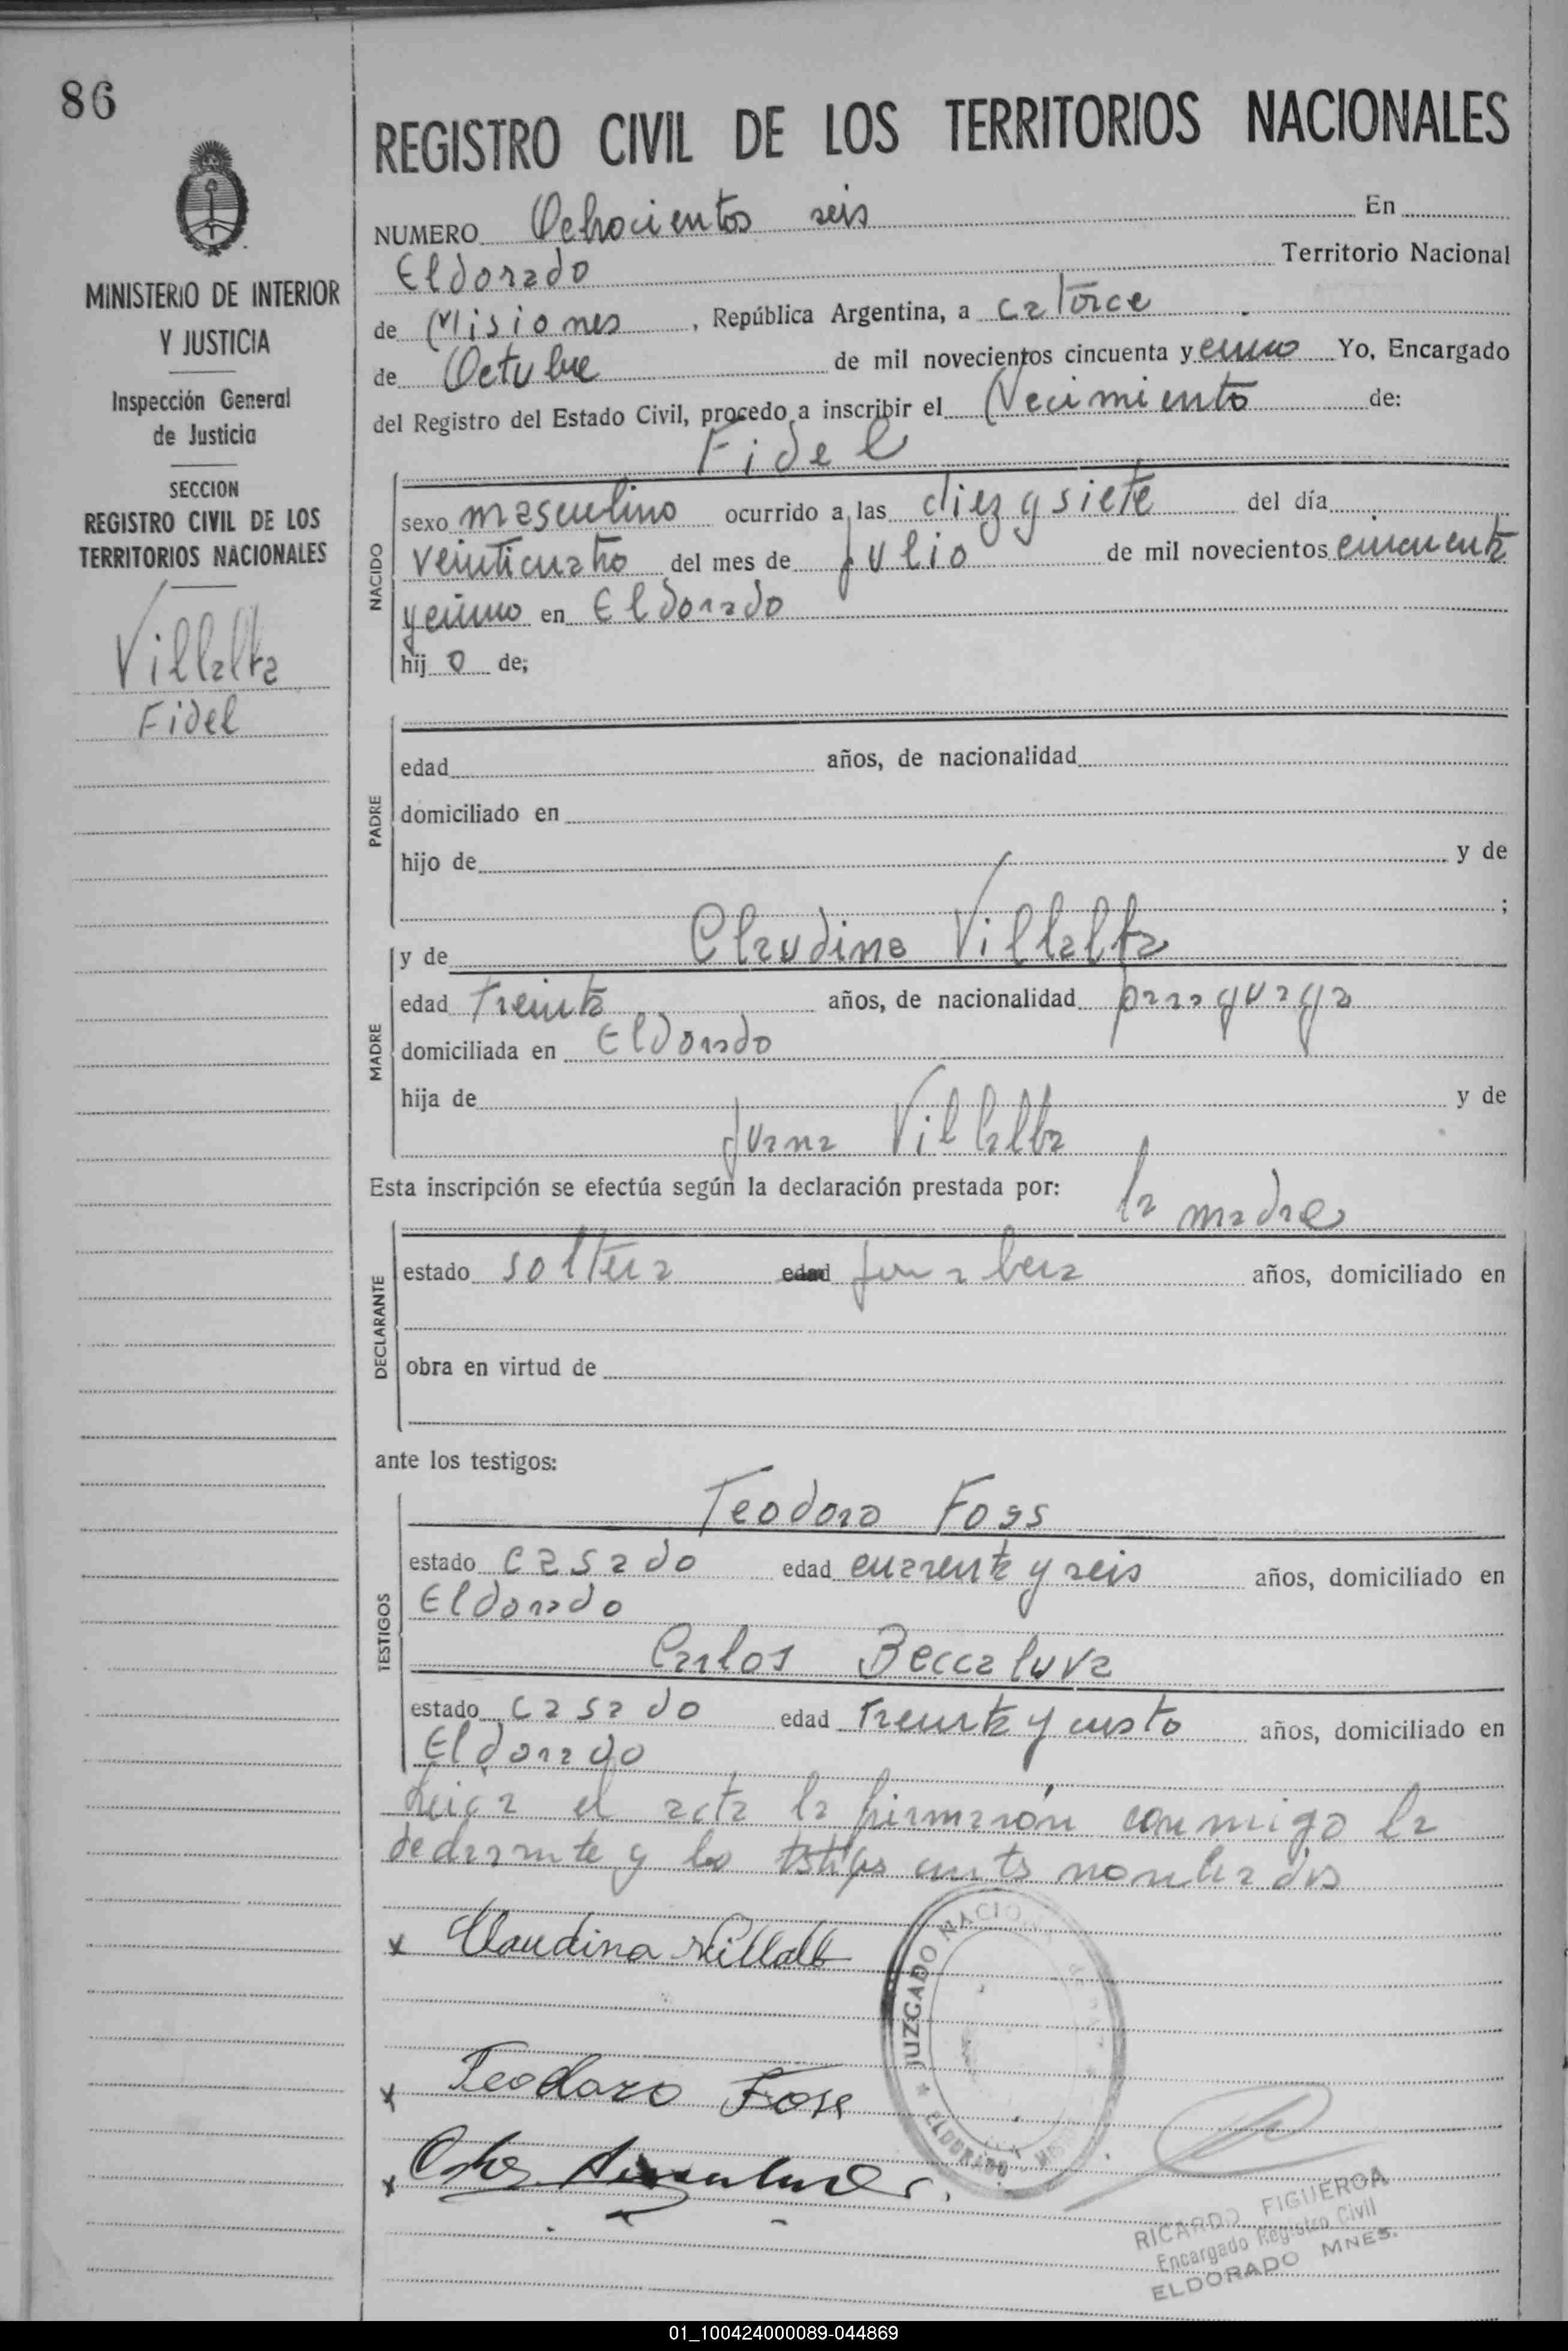 86
MINISTERIO DE INTERIOR
Y JUSTICIA
Inspección General
de Justicia
SECCION
REGISTRO CIVIL DE LOS
TERRITORIOS NACIONALES
Villalba
Fidel
REGISTRO CIVIL DE LOS TERRITORIOS NACIONALES
NUMERO Ochocientos seis En
Eldorado Territorio Nacional
de Misiones, República Argentina, a catorce
de Octubre de mil novecientos cincuenta y cinco Yo, Encargado
del Registro del Estado Civil, procedo a inscribir el Nacimiento de:
Fidel
NACIDO
sexo masculino ocurrido a las diez y siete del día
veinticuatro del mes de Julio de mil novecientos cincuenta
y cinco en Eldorado
hij o de;
PADRE
edad años, de nacionalidad
domiciliado en
hijo de y de
;
y de Claudina Villalba
MADRE
edad treinta años, de nacionalidad paraguaya
domiciliada en Eldorado
hija de y de
Juana Villalba
Esta inscripción se efectúa según la declaración prestada por: la madre
DECLARANTE
estado soltera edad años, domiciliado en
obra en virtud de
ante los testigos:
TESTIGOS
Teodoro Foss
estado casado edad cuarenta y seis años, domiciliado en
Eldorado
Carlos Beccaluva
estado casado edad treinta y cuatro años, domiciliado en
Eldorado
Leida el acta la firmarón conmigo la
declarante y los testigos antes nombrados
x Claudina Villalb
x Teodoro Foss
x
JUZGADO NACIO
ELDORADO
RICARDO FIGUEROA
Encargado Registro Civil
ELDORADO MNES.
01_100424000089-044869